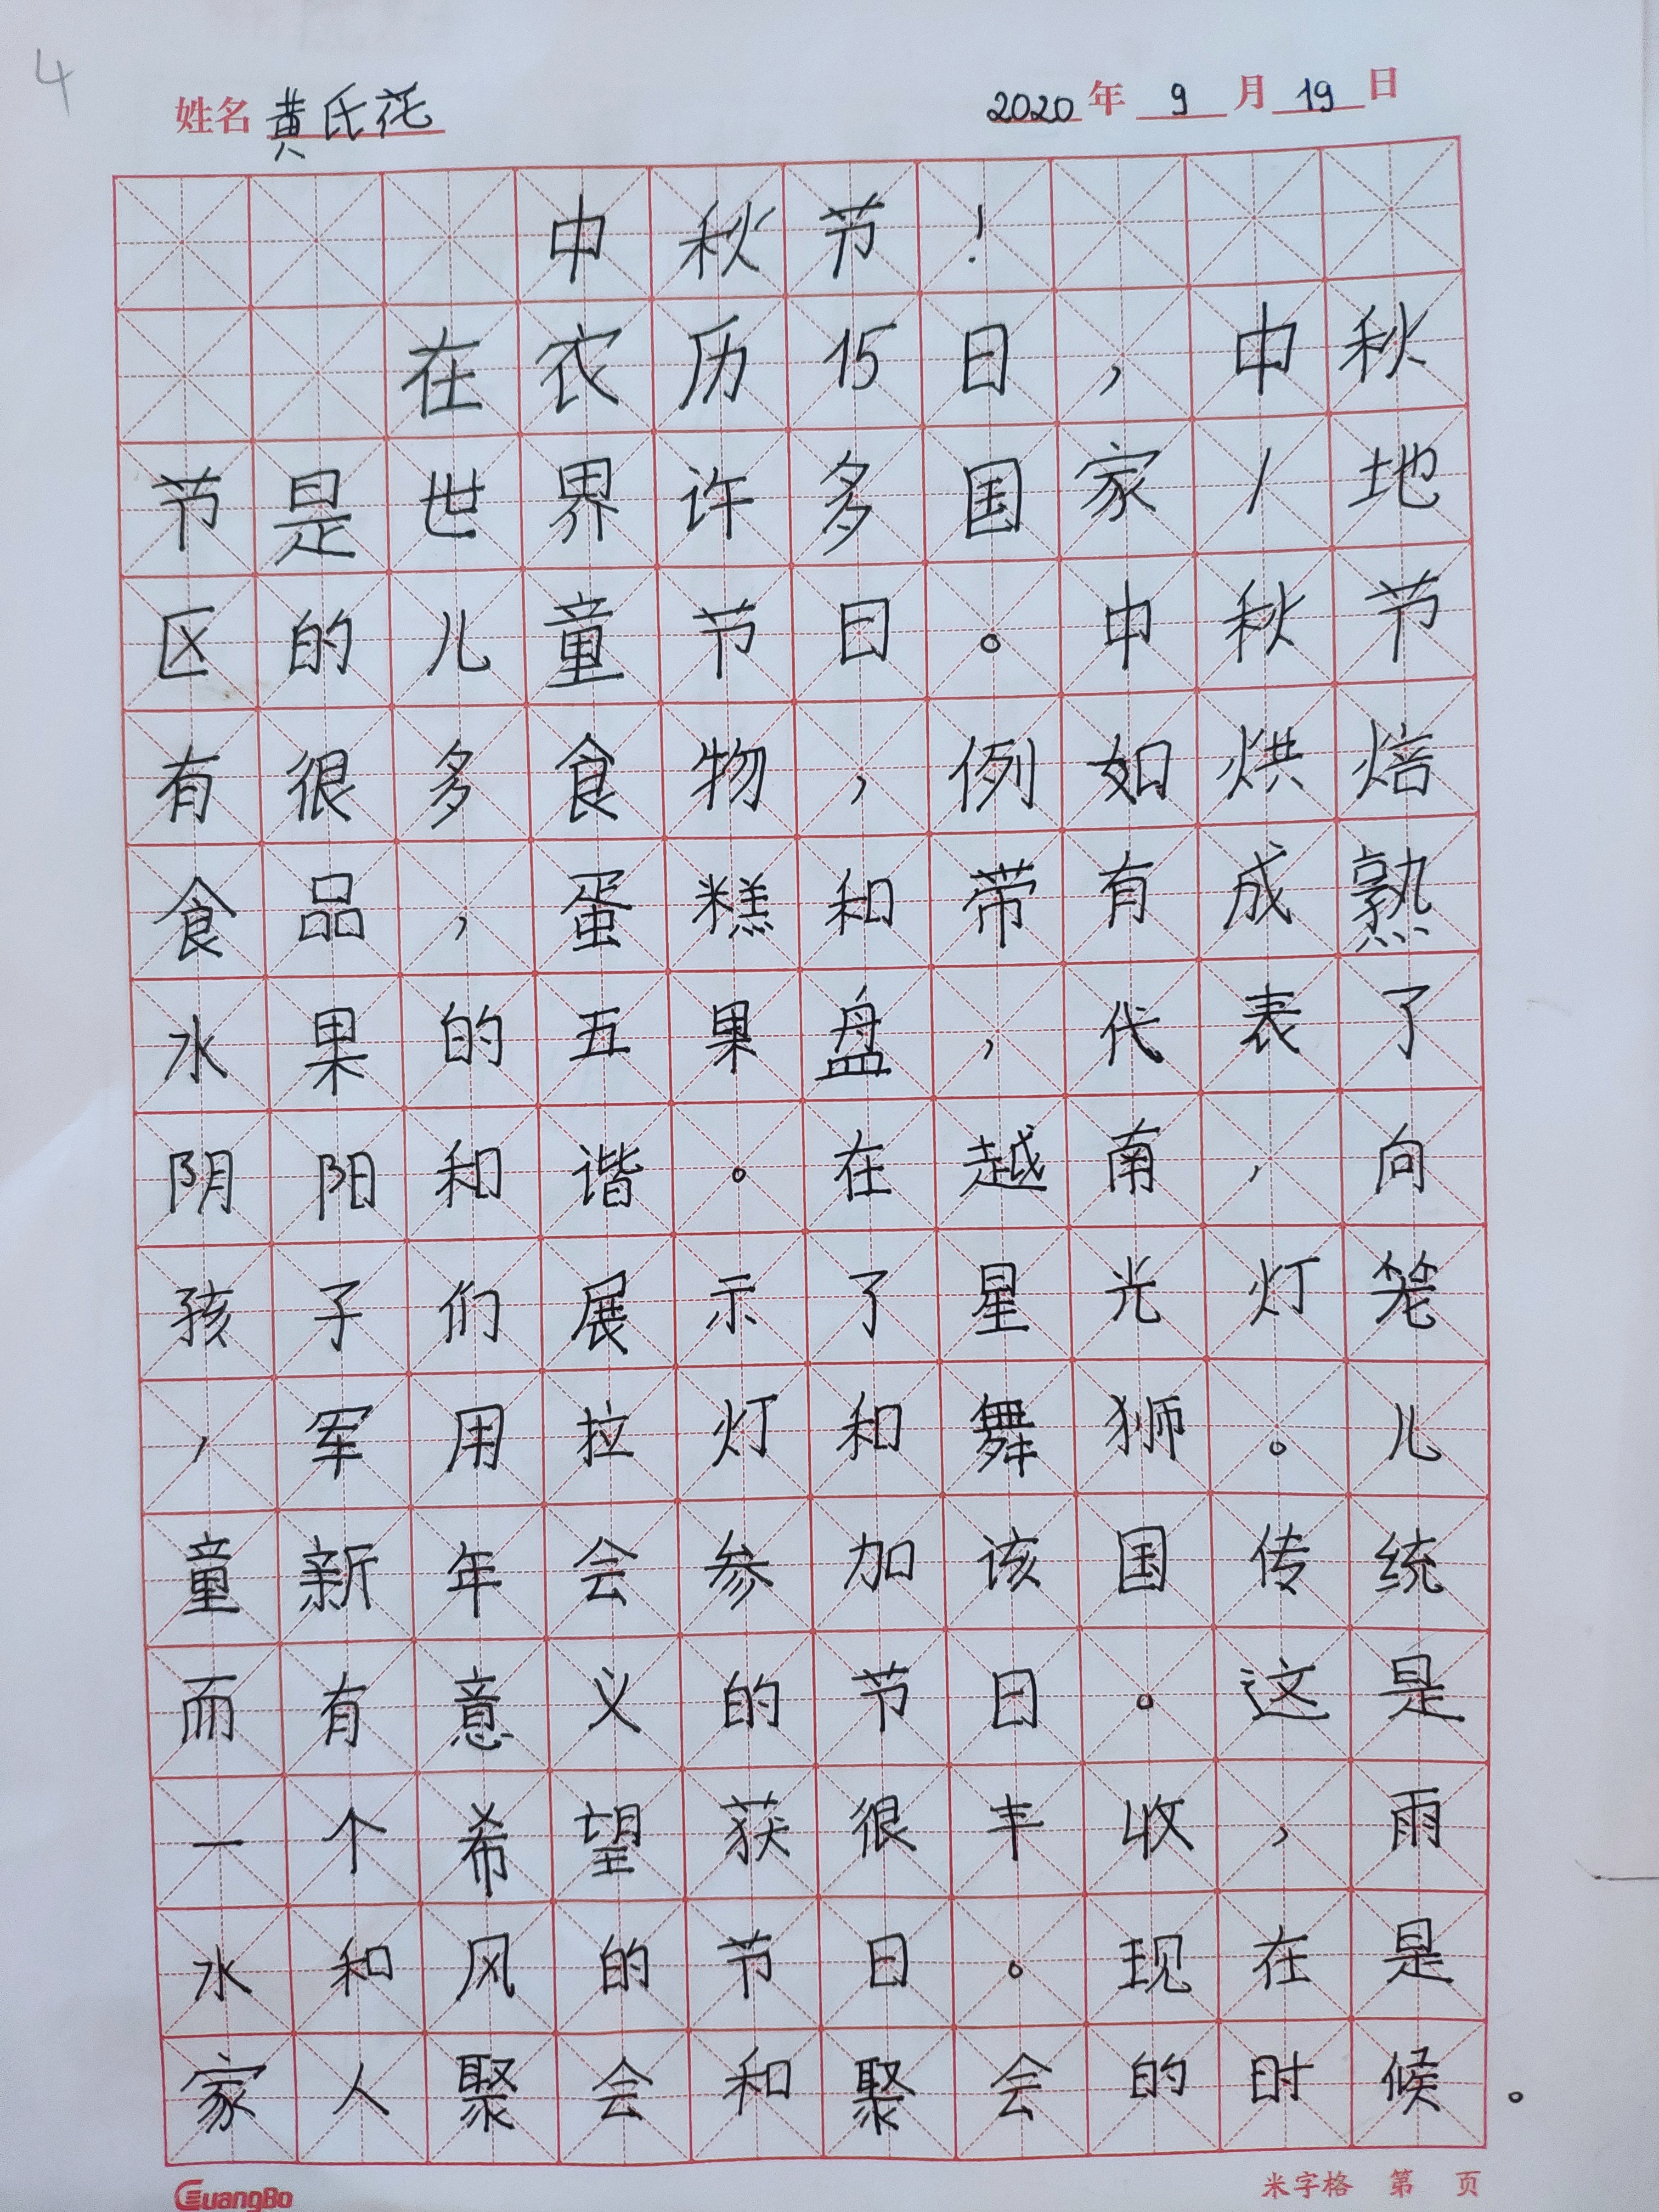 4
姓名 黄氏花 2020年 9月 19日
中秋节！
在农历15日，中秋
节是世界许多国家/地
区的儿童节日。中秋节
有很多食物，例如烘焙
食品，蛋糕和带有成熟
水果的五果盘，代表了
阴阳和谐。在越南，向
孩子们展示了星光灯笼
，军用拉灯和舞狮。儿
童新年会参加该国传统
而有意义的节日。这是
一个希望获很丰收，雨
水和风的节日。现在是
家人聚会和聚会的时候。
GuangBo 米字格 第 页